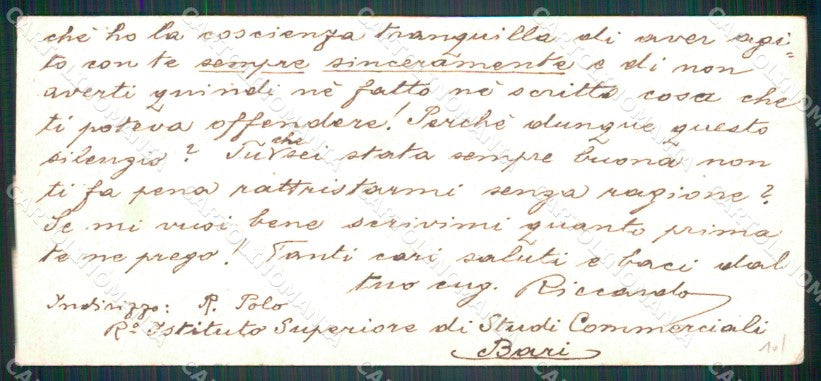 chè ho la coscienza tranquilla di aver agi-
to con te sempre sinceramente e di non
averti quindi nè fatto nè scritto cosa che
ti poteva offendere! Perchè dunque questo
silenzio? Tu che sei stata sempre buona non
ti fa pena rattristarmi senza ragione?
Se mi vuoi bene scrivimi quanto prima
te ne prego! Tanti cari saluti e baci dal
tuo cug. Riccardo
Indirizzo: R. Polo
Rº Istituto Superiore di Studi Commerciali
Bari
CARTOLINOMANIA